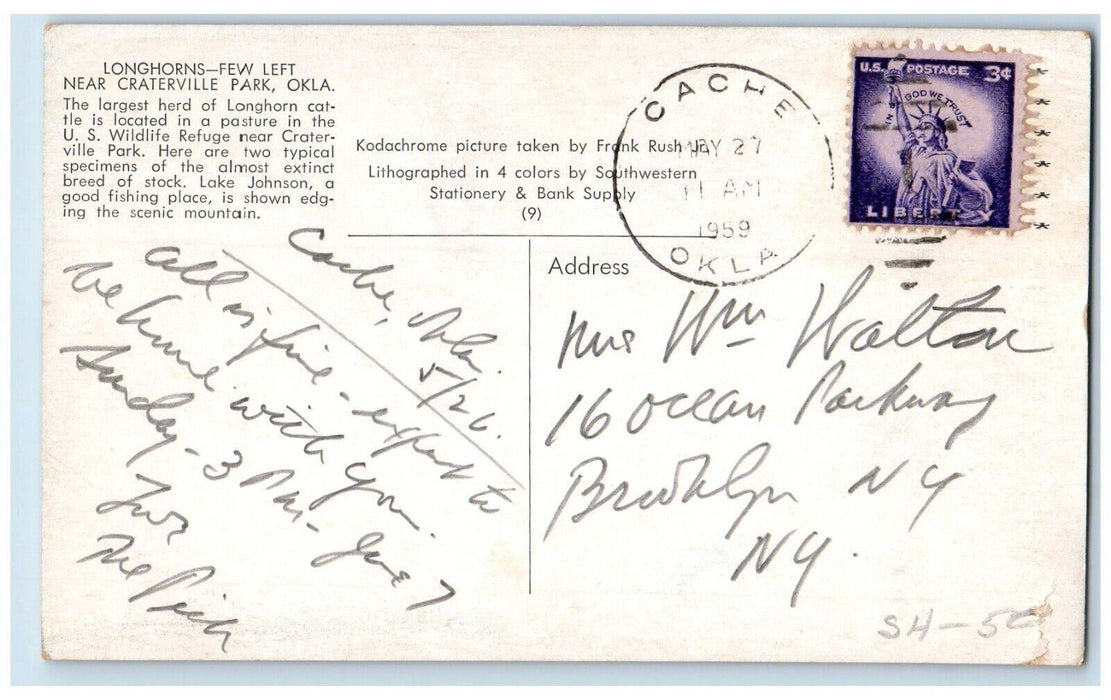 LONGHORNS—FEW LEFT
NEAR CRATERVILLE PARK, OKLA.
The largest herd of Longhorn cat-
tle is located in a pasture in the
U. S. Wildlife Refuge near Crater-
ville Park. Here are two typical
specimens of the almost extinct
breed of stock. Lake Johnson, a
good fishing place, is shown edg-
ing the scenic mountain.
Kodachrome picture taken by Frank Rush Jr.
Lithographed in 4 colors by Southwestern
Stationery & Bank Supply
(9)
CACHE
MAY 27
11 AM
1959
OKLA
U.S. POSTAGE 3¢
IN GOD WE TRUST
LIBERTY
Cache, Okla.
5/26.
All is fine - expect to
be home with you
Sunday - 3 PM - June 7
The
Address
Mrs Wm Walton
16 Ocean Parkway
Brooklyn NY
NY.
SH-5C